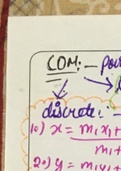 COM:-
discrete:-
10) x = m1x1+
m1+
20) y = m1y1+